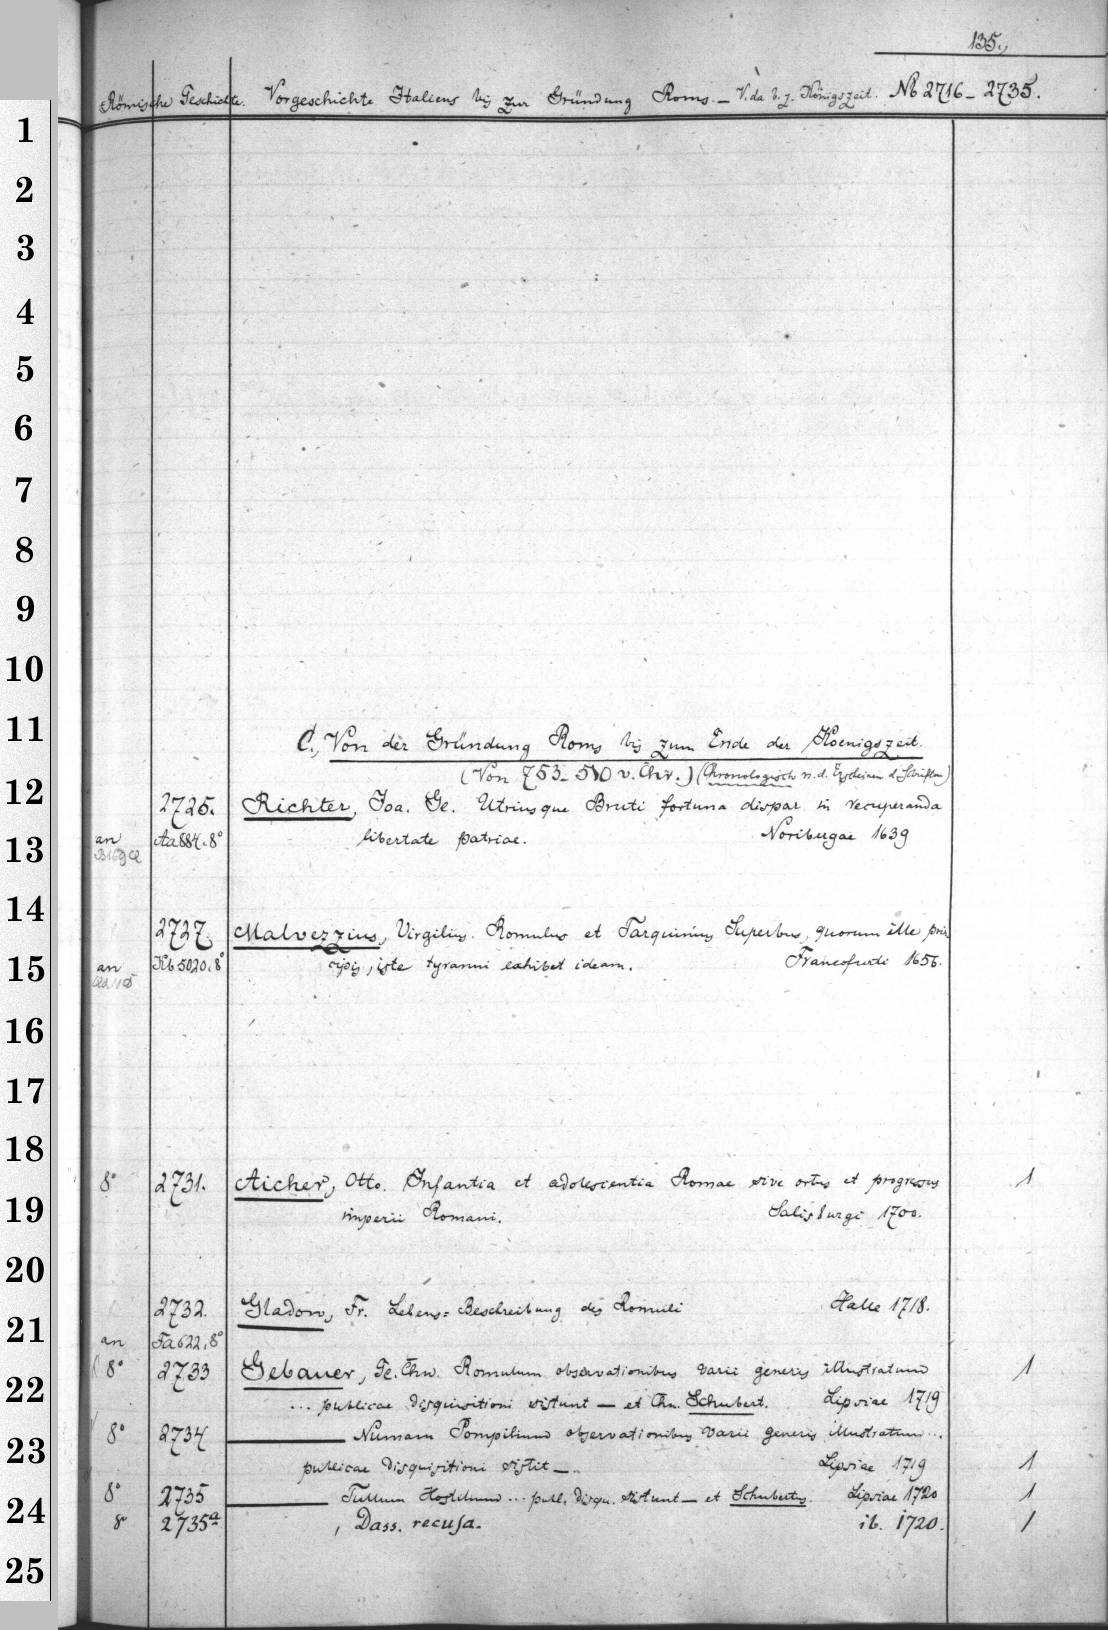 135.
Römische Geschichte. Vorgeschichte Italiens bis zur Gründung Roms. — V. da b. z. Königszeit. No 2716 - 2735.
1
2
3
4
5
6
7
8
9
10
11
C., Von der Gründung Roms bis zum Ende der Koenigszeit.
(Von 753-510 v. Chr.) (Chronologisch n. d. Erscheinen d. Schriften)
12
2725. Richter, Joa. Ge. Utriusque Bruti fortuna dispar in recuperanda
13
an Aa 884. 8° libertate patriae. Noribergae 1639
14
2727. Malvezzius, Virgilius. Romulus et Tarquinius Superbus, quorum ille prin
15
an Kb 5020. 8° cipis, iste tyranni exhibet ideam. Francofurti 1656.
16
17
18
8° 2731. Aicher, Otto. Infantia et adolescentia Romae sive ortus et progressus 1
19
imperii Romani. Salisburgi 1700.
20
2732. Gladow, Fr. Lebens=Beschreibung des Romuli Halle 1718.
21
an Fa 622, 8°
8° 2733 Gebauer, Ge. Chn. Romulum observationibus varii generis illustratum 1
22
... publicae disquisitioni sistunt — et Chn. Schubert. Lipsiae 1719
8° 2734 — Numam Pompilium observationibus varii generis illustratum ...
23
publicae disquisitioni sistit —. Lipsiae 1719 1
8° 2735 — Tullum Hostilium ... publ. disqu. sistunt — et Schubertus. Lipsiae 1720 1
24
8° 2735a , Dass. recusa. ib. 1720. 1
25